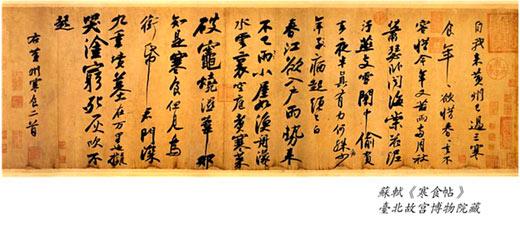 自我來黃州已過三寒
食年年欲惜春春去不
容惜今年又苦雨兩月秋
蕭瑟臥聞海棠花泥
汙燕支雪闇中偷負
去夜半真有力何殊少
年子病起頭已白
春江欲入戶雨勢來
不已雨小屋如漁舟濛濛
水雲裏空庖煮寒菜
破竈燒濕葦那
知是寒食但見烏
銜帋君門深
九重墳墓在万里也擬
哭塗窮死灰吹不
起
右黃州寒食二首
蘇軾《寒食帖》
臺北故宮博物院藏